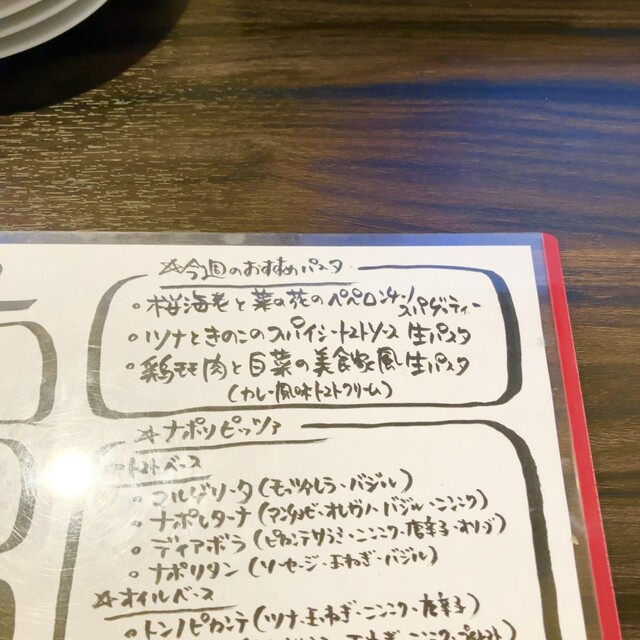 ☆今週のおすすめパスタ
◦桜海老と菜の花のペペロンチーノ スパゲッティー
◦ツナときのこのスパイシートマトソース 生パスタ
◦鶏モモ肉と白菜の美食家風 生パスタ
(カレー風味トマトクリーム)
☆ナポリピッツァ
☆トマトベース
◦マルゲリータ(モッツァレラ・バジル)
◦ナポレターナ(アンチョビ・オレガノ・バジル・ニンニク)
◦ディアボラ(ピカンテサラミ・ニンニク・唐辛子・オリーブ)
◦ナポリタン(ソーセージ・玉ねぎ・バジル)
☆オイルベース
◦トンノピカンテ(ツナ・玉ねぎ・ニンニク・唐辛子)
玉ねぎ・ニンニク